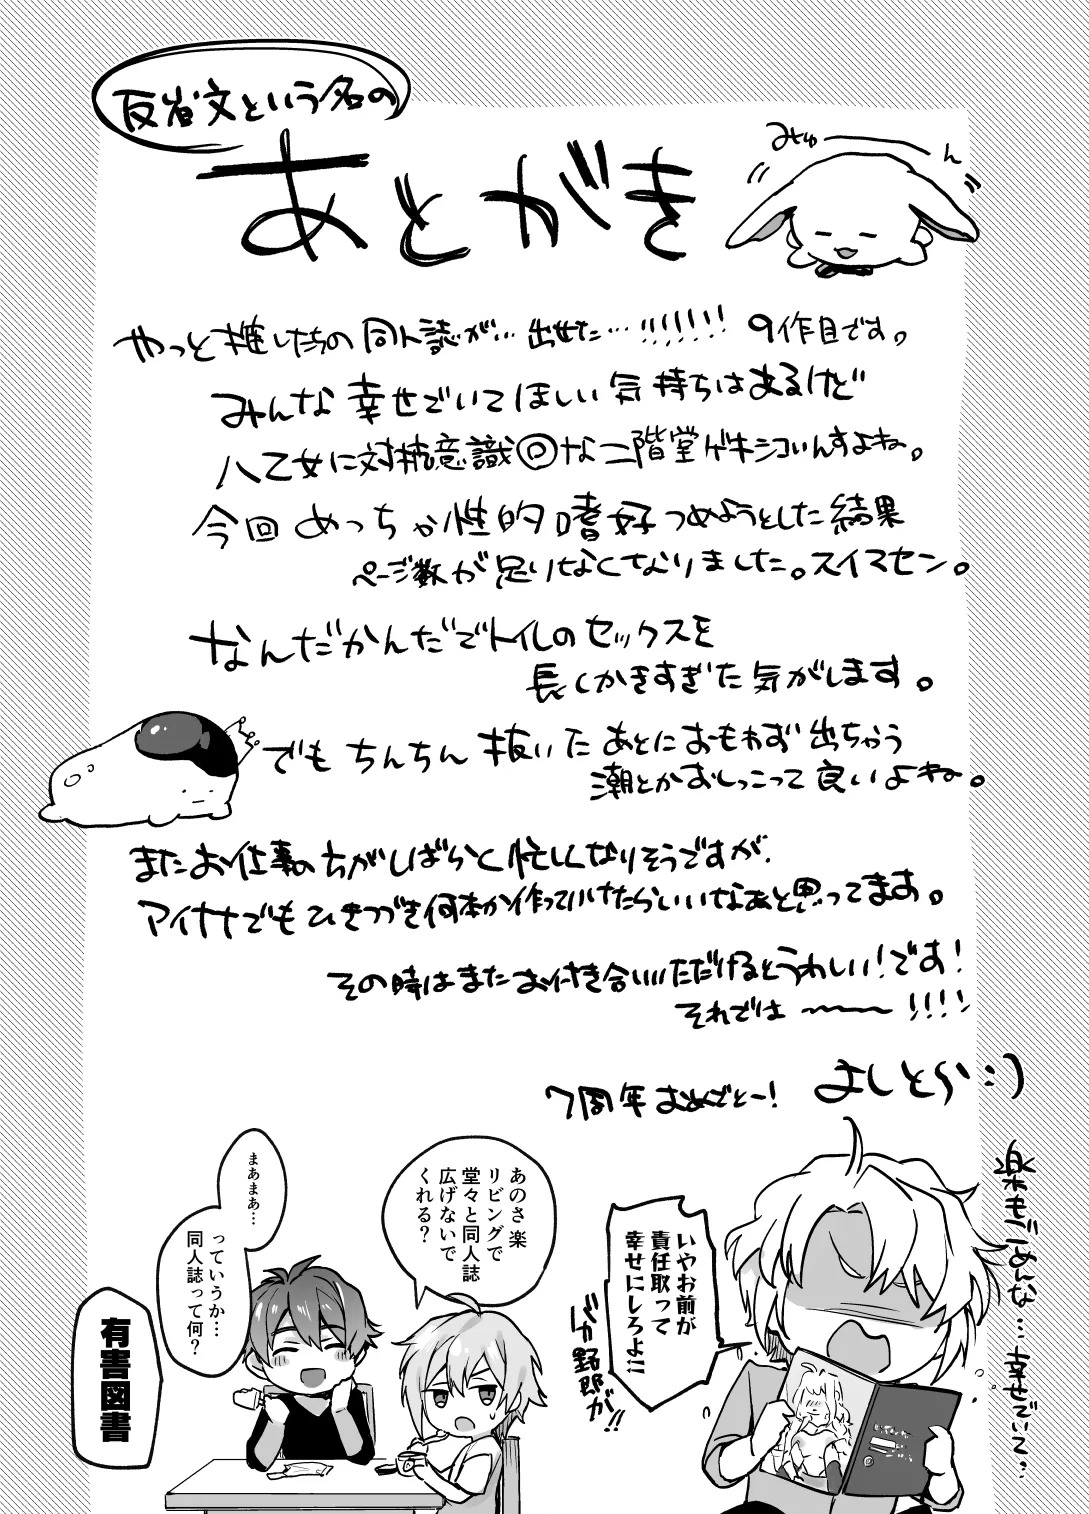 反省文という名の
あとがき
みゅーーん
やっと推したちの同人誌が…出せた…!!!!!!! 9作目です。
みんな幸せでいてほしい気持ちはあるけど
八乙女に対抗意識◎な二階堂ゲキシコいんすよね。
今回めっちゃ性的嗜好つめようとした結果
ページ数が足りなくなりました。スイマセン。
なんだかんだでトイレのセックスを
長くかきすぎた気がします。
でもちんちん抜いたあとにおもわず出ちゃう
潮とかおしっこって良いよね。
またお仕事の方がしばらく忙しくなりそうですが、
アイナナでもひきつづき何本か作っていけたらいいなあと思ってます。
その時はまたお付き合いいただけるとうれしい!です!
それでは〜〜〜!!!!
7周年おめでとー!
よしとら:)
楽もごめんな…幸せでいて?
いやお前が
責任取って
幸せにしろよ!!
バカ野郎が!!
あのさ楽
リビングで
堂々と同人誌
広げないで
くれる?
まあまあ…
っていうか…
同人誌って何?
有害図書